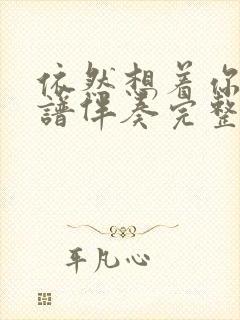 依然想着你
谱伴奏完整
平凡心